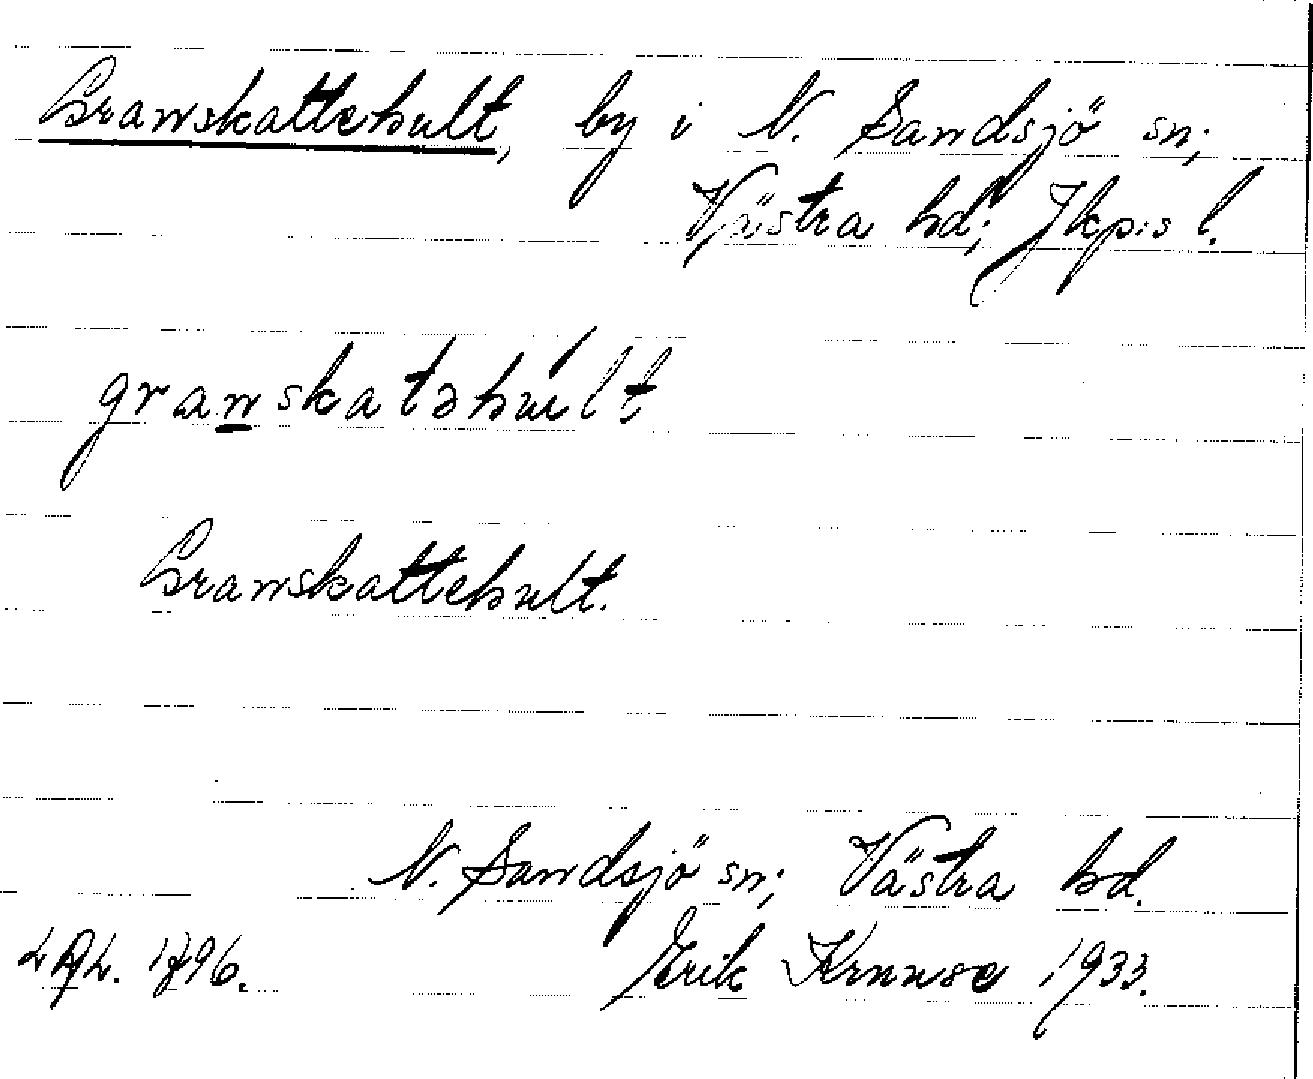 Granskattehult, by i N. Sandsjö sn;
Västra hd; Jkp:s l.
granskatəhult
Granskattehult.
N. Sandsjö sn; Västra hd.
1796. Erik Kruuse 1933.